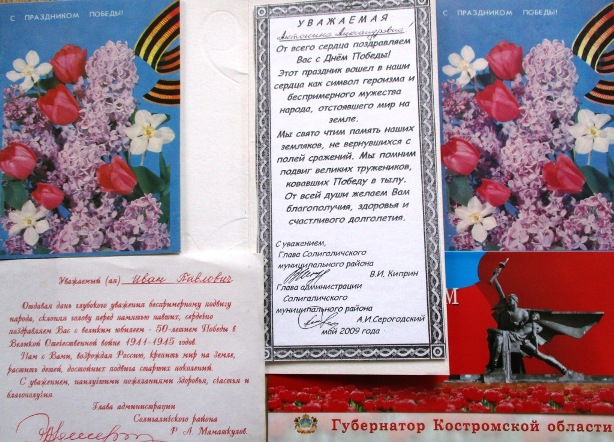 С ПРАЗДНИКОМ ПОБЕДЫ!
УВАЖАЕМАЯ
Антонина Александровна!
От всего сердца поздравляем
Вас с Днём Победы!
Этот праздник вошел в наши
сердца как символ героизма и
беспримерного мужества
народа, отстоявшего мир на
земле.
Мы свято чтим память наших
земляков, не вернувшихся с
полей сражений. Мы помним
подвиг великих тружеников,
ковавших Победу в тылу.
От всей души желаем Вам
благополучия, здоровья и
счастливого долголетия.
С уважением,
Глава Солигаличского
муниципального района
В.И. Киприн
Глава администрации
Солигаличского
муниципального района
А.И.Серогодский
май 2009 года
С ПРАЗДНИКОМ ПОБЕДЫ!
Уважаемый (ая) Иван Павлович
Отдавая дань глубокого уважения беспримерному подвигу
народа, склоняя голову перед памятью павших, сердечно
поздравляем Вас с великим юбилеем - 50-летием Победы в
Великой Отечественной войне 1941-1945 годов.
Нам с Вами, возрождая Россию, крепить мир на Земле,
растить детей, достойных подвига старших поколений.
С уважением, наилучшими пожеланиями здоровья, счастья и
благополучия
Глава администрации
Солигаличского района
Р. А. Мамашкулов.
М
Губернатор Костромской области